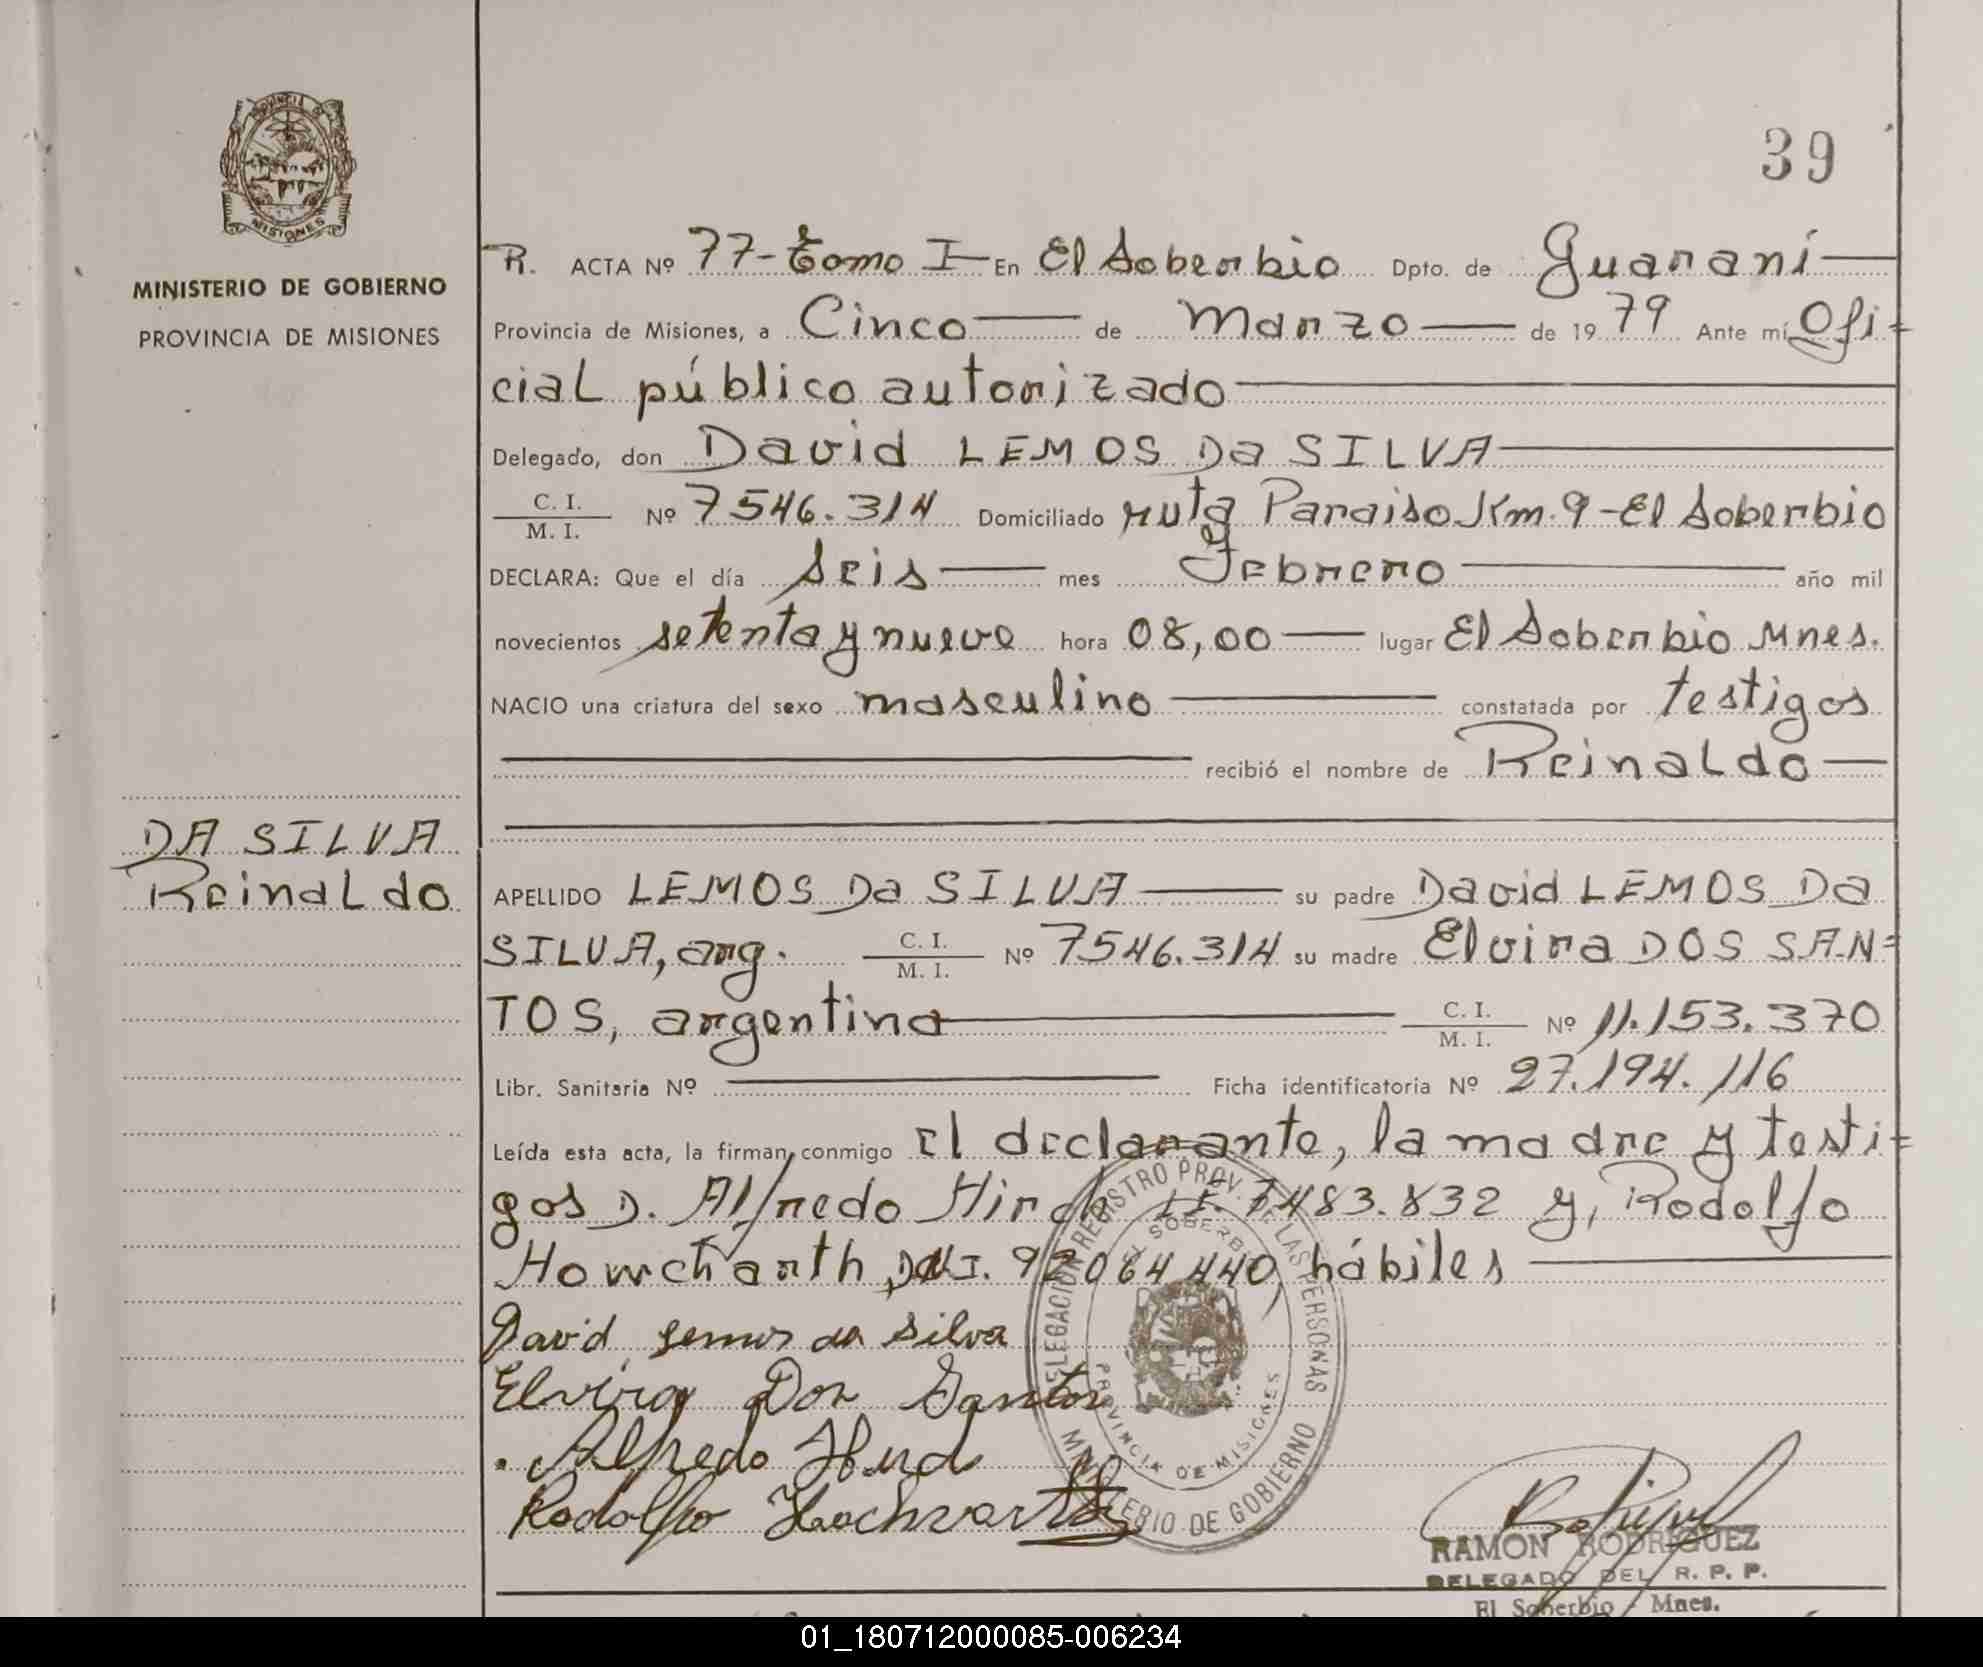 39
PROVINCIA DE
MISIONES
MINISTERIO DE GOBIERNO
PROVINCIA DE MISIONES
DA SILVA
Reinaldo
R. ACTA Nº 77-Tomo I- En El Soberbio Dpto. de Guaraní
Provincia de Misiones, a Cinco de Marzo de 1979 Ante mí Ofi=
cial público autorizado
Delegado, don David LEMOS Da SILVA
C. I. / M. I. Nº 7546.314 Domiciliado ruta Paraiso Km.9-El Soberbio
DECLARA: Que el día Seis mes Febrero año mil
novecientos setenta y nueve hora 08,00 lugar El Soberbio Mnes.
NACIO una criatura del sexo masculino constatada por testigos
recibió el nombre de Reinaldo
APELLIDO LEMOS Da SILVA su padre David LEMOS Da
SILVA, arg. C. I. / M. I. Nº 7546.314 su madre Elvira DOS SAN=
TOS, argentina C. I. / M. I. Nº 11.153.370
Libr. Sanitaria Nº Ficha identificatoria Nº 27.194.116
Leída esta acta, la firman conmigo El declarante, la madre y testi=
gos D. Alfredo 7483.832 y, Rodolfo
DNI. 92064440, hábiles
David Lemos da Silva
Elvira Dos Santos
Alfredo
Rodolfo
DELEGACION REGISTRO PROV. DE LAS PERSONAS
EL SOBERBIO
PROVINCIA DE MISIONES
MINISTERIO DE GOBIERNO
RAMON RODRIGUEZ
DELEGADO DEL R. P. P.
El Soberbio - Mnes.
01_180712000085-006234